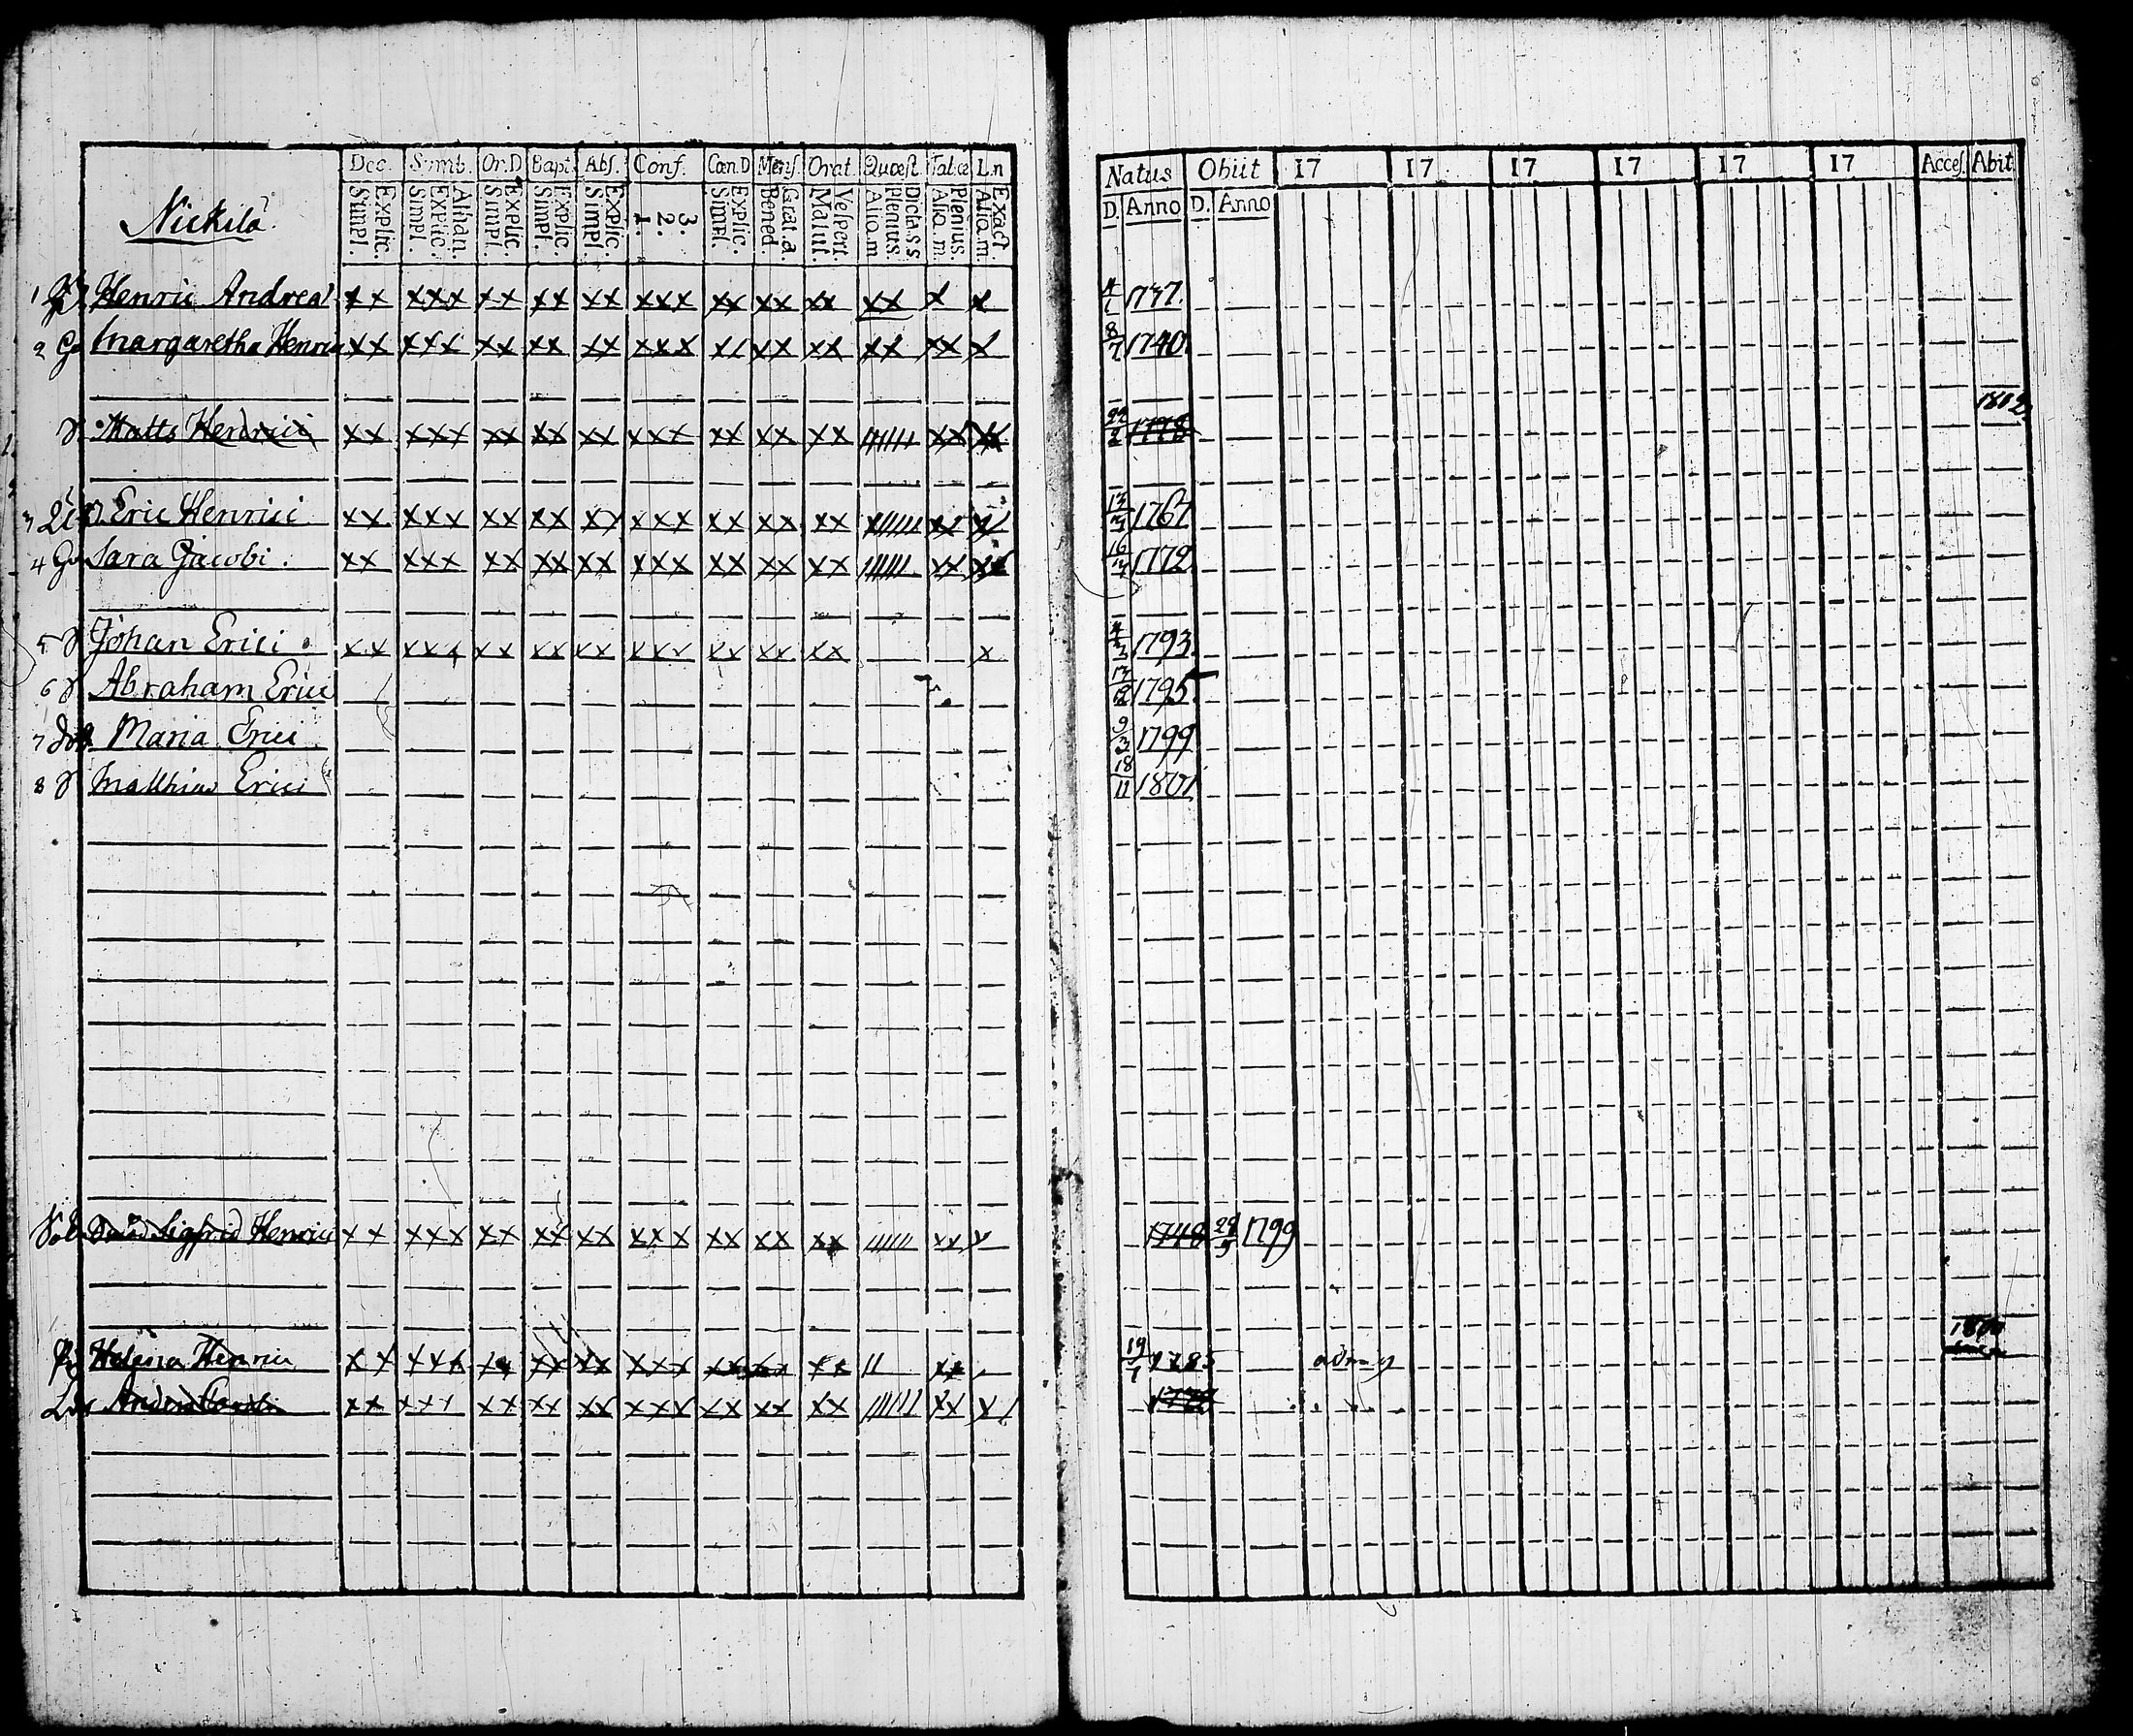 Nickilä
Dec. Symb. Or.D. Bapt. Abs. Conf. Cœn.D Mens. Orat. Quæst. Tabul L.n
Explic. Simpl. Athan. Explic. Simpl. Explic. Simpl. Explic. Simpl. Explic. Simpl. 3. 2. 1. Explic. Simpl. Grat.a. Bened. Vespert. Matut. Dicta S.S Plenius. Aliq.m Plenius. Aliq.m. Exact. Aliq.m.
Natus Obiit 17 17 17 17 17 17 Acces. Abit
D. Anno D. Anno
1 Henric Andreæ xx xxx xx xx xx xxx xx xx xx xx x x 1737.
2 Margaretha Henrici xx xxx xx xx xx xxx xx xx xx xx xx x 8/7 1740
1802
Matts Henrici xx xxx xx xx xx xxx xx xx xx xx 22/2 1778
3 Eric Henrici xx xxx xx xx xx xxx xx xx xx xx 1767
4 Sara Jacobi xx xxx xx xx xx xxx xx xx xx xx 1772
5 Johan Erici xx xxx xx xx xx xxx xx xx xx x 1793
6 Abraham Erici 1795
7 Maria Erici 9/3 1799
8 Matthias Erici 18/11 1801
Sigfrid Henrici xx xxx xx xx xx xxx xx xx xx xx 1748 1799
1800
Helena Henrici xx xxx xx xx xx xxx xx xx xx xx 1785
Anders xx xxx xx xx xx xxx xx xx xx xx